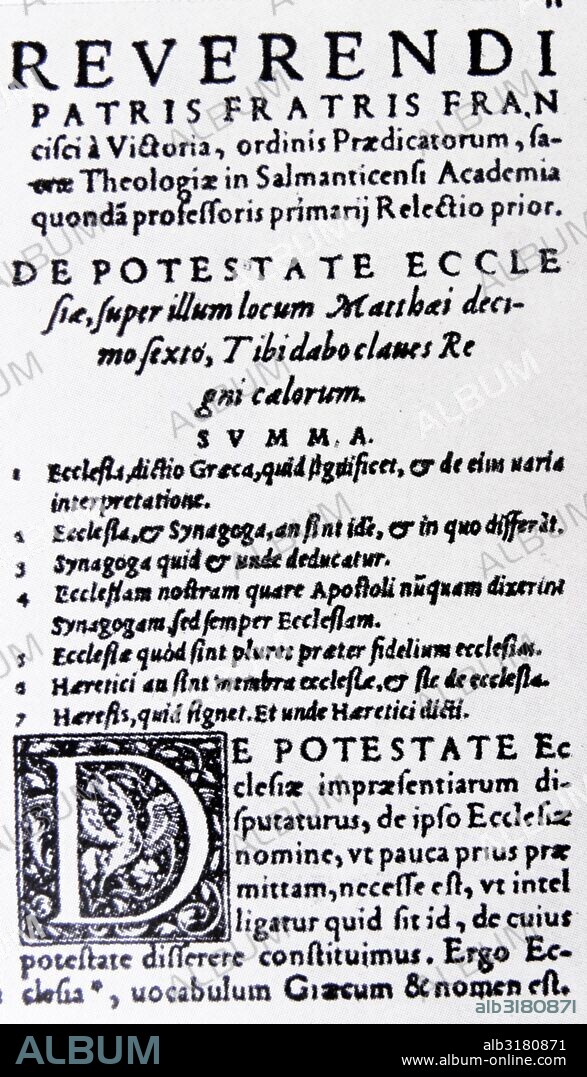 REVERENDI
PATRIS FRATRIS FRAN
cisci à Victoria, ordinis Prædicatorum, sa-
cræ Theologiæ in Salmanticensi Academia
quondã professoris primarij Relectio prior.
DE POTESTATE ECCLE
siæ, super illum locum Matthæi deci-
mosexto, Tibi dabo claues Re
gni cælorum.
SVMMA.
1 Ecclesia, dictio Græca, quid significet, & de eius uaria
interpretatione.
2 Ecclesia, & Synagoga, an sint idẽ, & in quo differãt.
3 Synagoga quid & unde deducatur.
4 Ecclesiam nostram quare Apostoli nũquam dixerint
Synagogam, sed semper Ecclesiam.
5 Ecclesiæ quòd sint plures præter fidelium ecclesias.
6 Hæretici an sint membra ecclesiæ, & sic de ecclesia.
7 Hæresis, quid signet. Et unde Hæretici dicti.
DE POTESTATE Ec
clesiæ impræsentiarum di-
sputaturus, de ipso Ecclesiæ
nomine, vt pauca prius præ
mittam, necesse est, vt intel
ligatur quid sit id, de cuius
potestate disserere constituimus. Ergo Ec-
clesia*, uocabulum Græcum & nomen est.
alb3180871
ALBUM
alb3180871
www.album-online.com